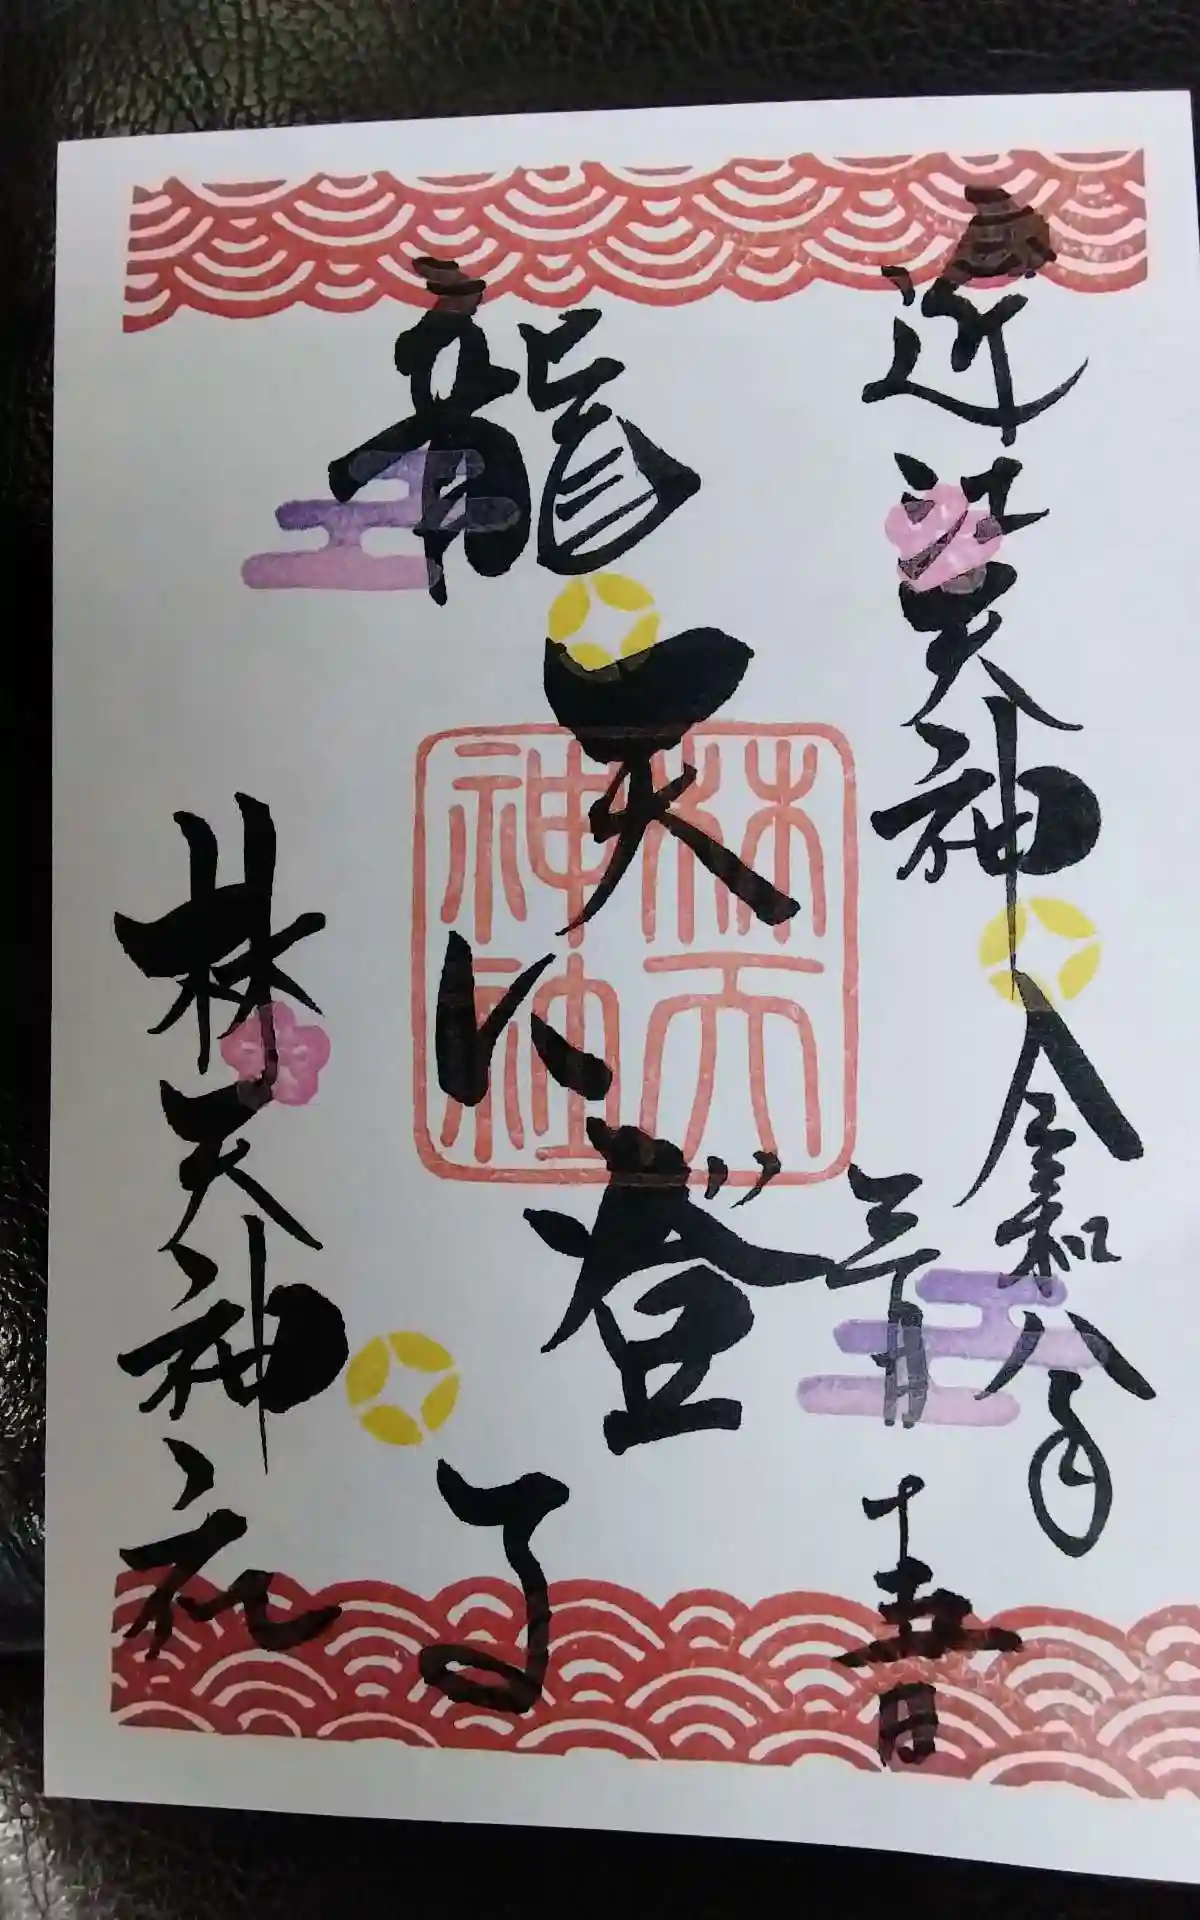 近江天神
令和八年
三月十五日
龍天に登る
林天神
林天神社